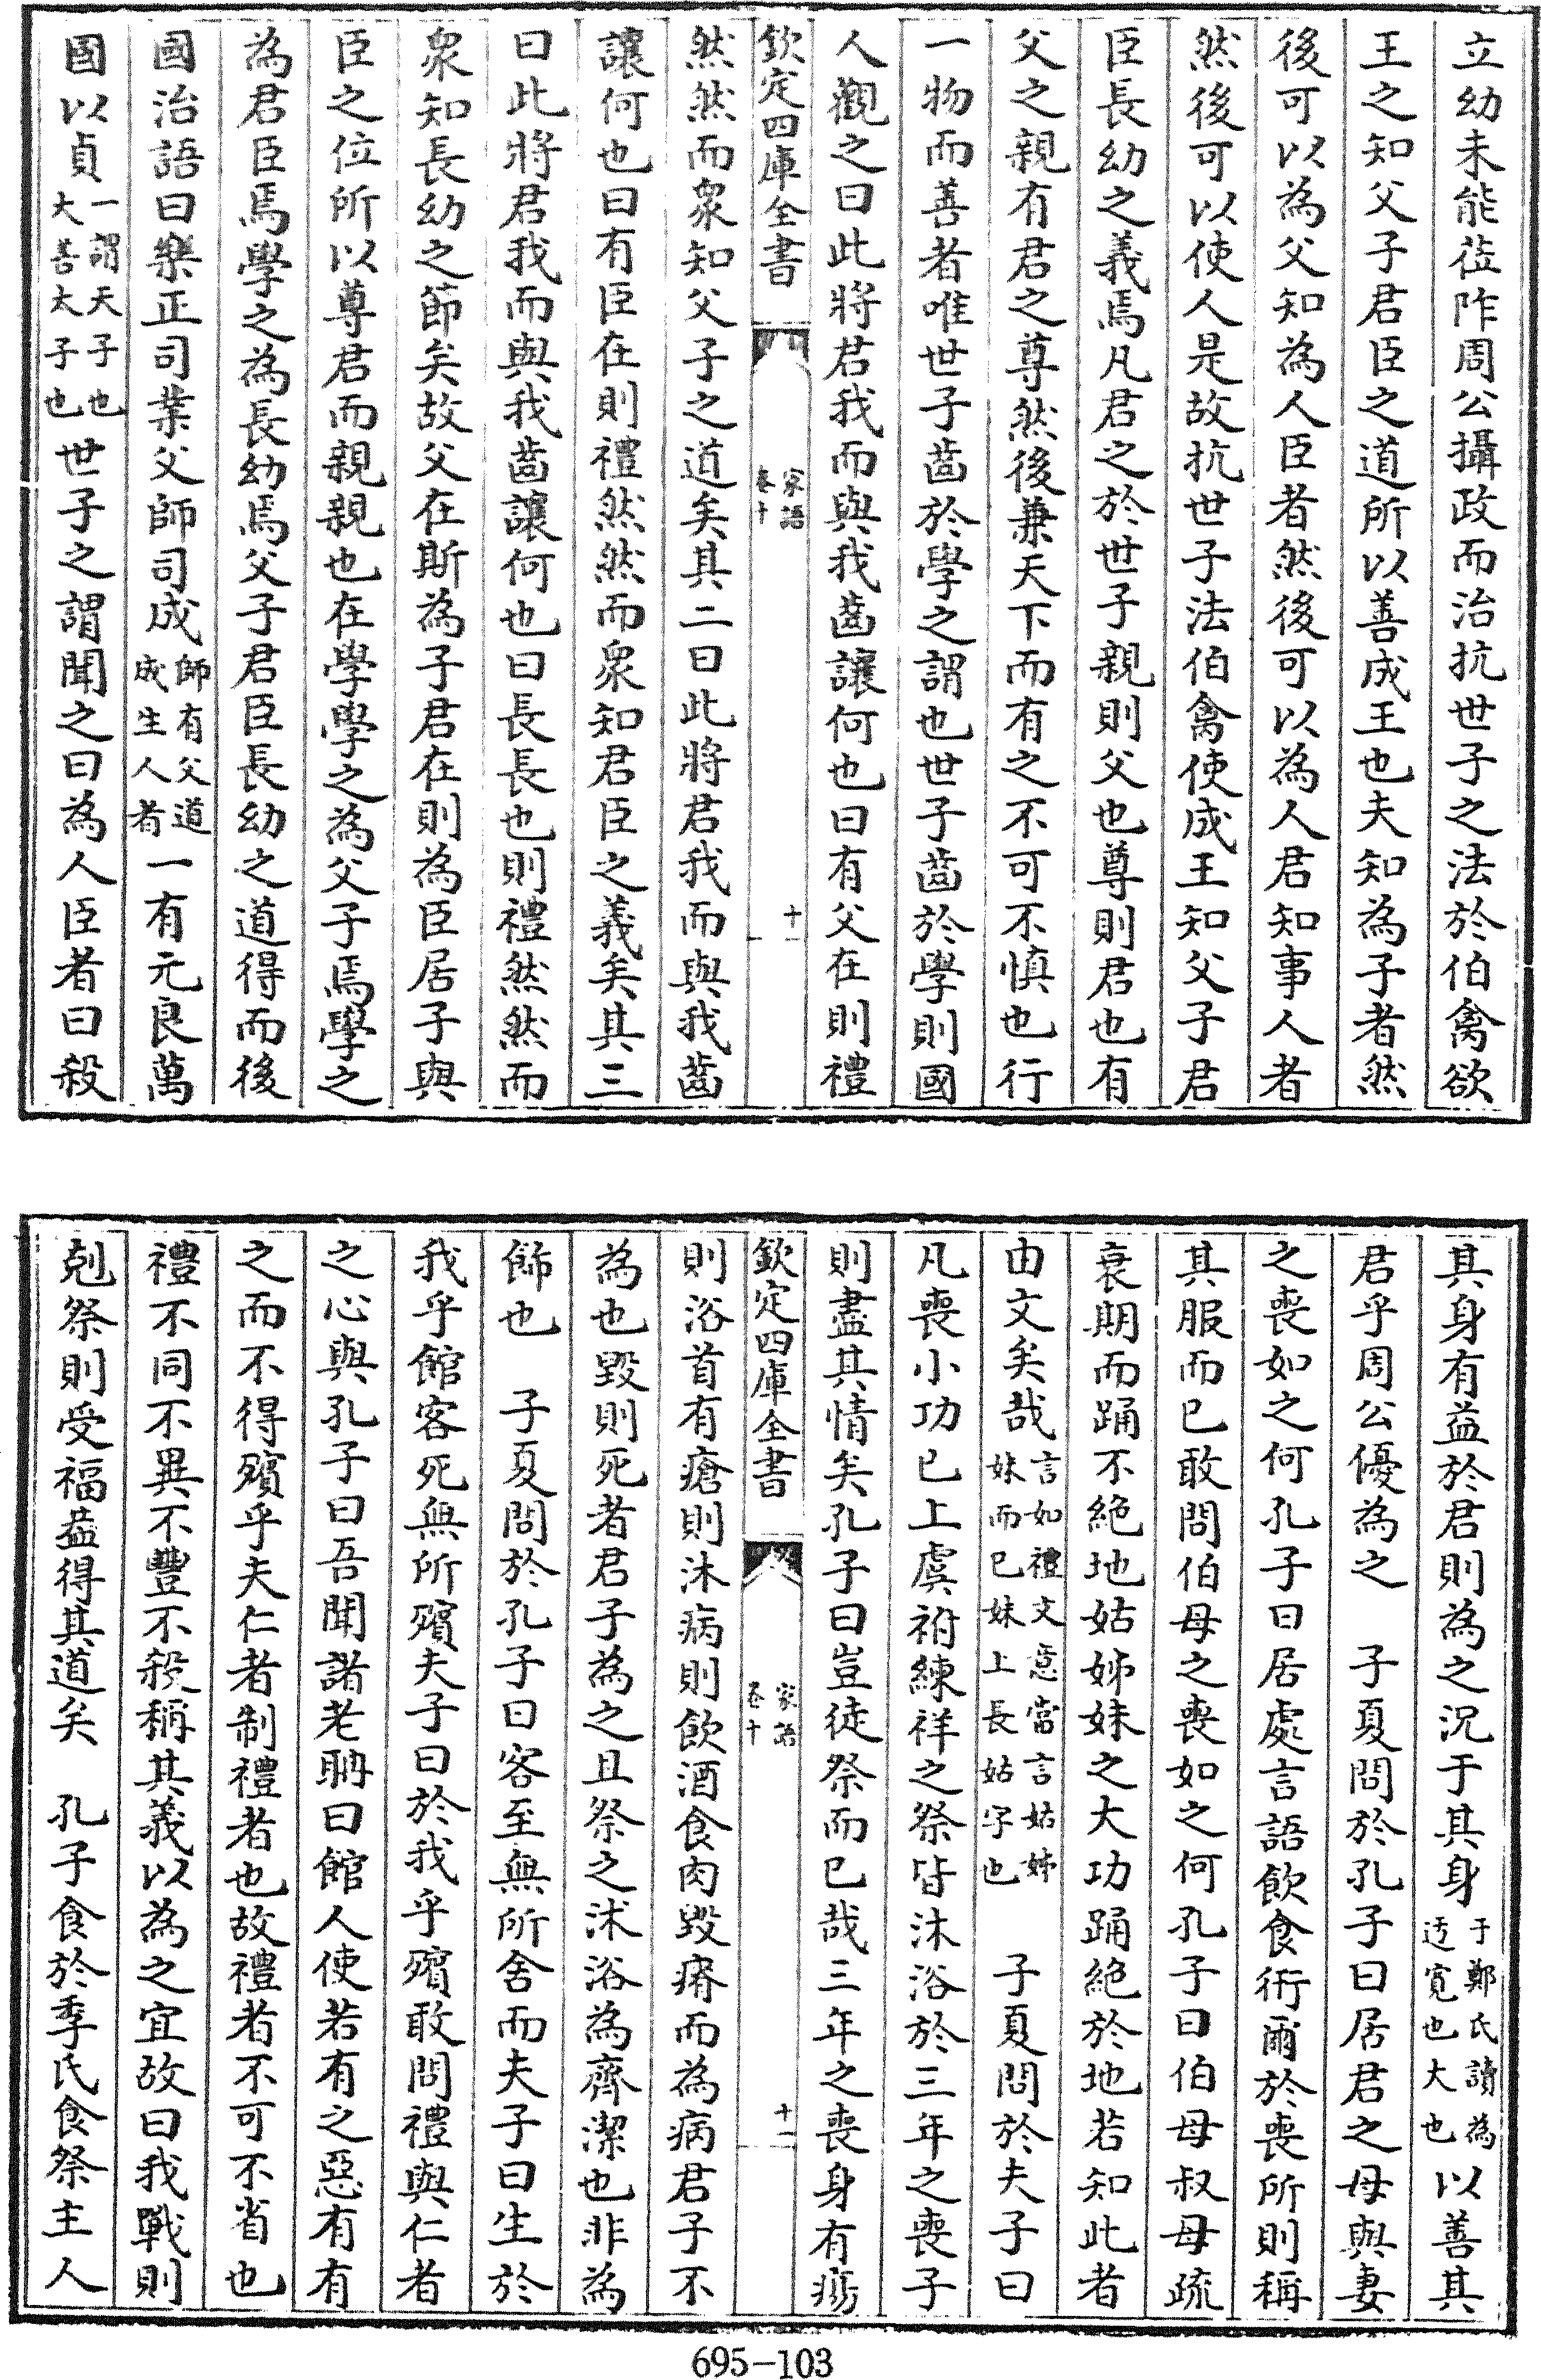 立幼未能莅阼周公攝政而治抗世子之法於伯禽欲
王之知父子君臣之道所以善成王也夫知為子者然
後可以為父知為人臣者然後可以為人君知事人者
然後可以使人是故抗世子法伯禽使成王知父子君
臣長幼之義焉凡君之於世子親則父也尊則君也有
父之親有君之尊然後兼天下而有之不可不慎也行
一物而善者唯世子齒於學之謂也世子齒於學則國
人觀之曰此將君我而與我齒讓何也曰有父在則禮
欽定四庫全書
家語
卷十
十一
然然而衆知父子之道矣其二曰此將君我而與我齒
讓何也曰有臣在則禮然然而衆知君臣之義矣其三
曰此將君我而與我齒讓何也曰長長也則禮然然而
衆知長幼之節矣故父在斯為子君在則為臣居子與
臣之位所以尊君而親親也在學學之為父子焉學之
為君臣焉學之為長幼焉父子君臣長幼之道得而後
國治語曰樂正司業父師司成師有父道成生人者一有元良萬
國以貞一謂天子也大善太子也世子之謂聞之曰為人臣者曰殺
其身有益於君則為之況于其身于鄭氏讀為迃寛也大也以善其
君乎周公優為之 子夏問於孔子曰居君之母與妻
之喪如之何孔子曰居處言語飲食衎爾於喪所則稱
其服而已敢問伯母之喪如之何孔子曰伯母叔母疏
衰期而踊不絶地姑姊妹之大功踊絶於地若知此者
由文矣哉言如禮文意當言姑姊妹而已妹上長姑字也 子夏問於夫子曰
凡喪小功已上虞祔練祥之祭皆沐浴於三年之喪子
則盡其情矣孔子曰豈徒祭而已哉三年之喪身有瘍
欽定四庫全書
家語
卷十
十二
則浴首有瘡則沐病則飲酒食肉毀瘠而為病君子不
為也毀則死者君子為之且祭之沐浴為齊潔也非為
飾也 子夏問於孔子曰客至無所舍而夫子曰生於
我乎館客死無所殯夫子曰於我乎殯敢問禮與仁者
之心與孔子曰吾聞諸老聃曰館人使若有之惡有有
之而不得殯乎夫仁者制禮者也故禮者不可不省也
禮不同不異不豐不殺稱其義以為之宜故曰我戰則
剋祭則受福葢得其道矣 孔子食於季氏食祭主人
695-103